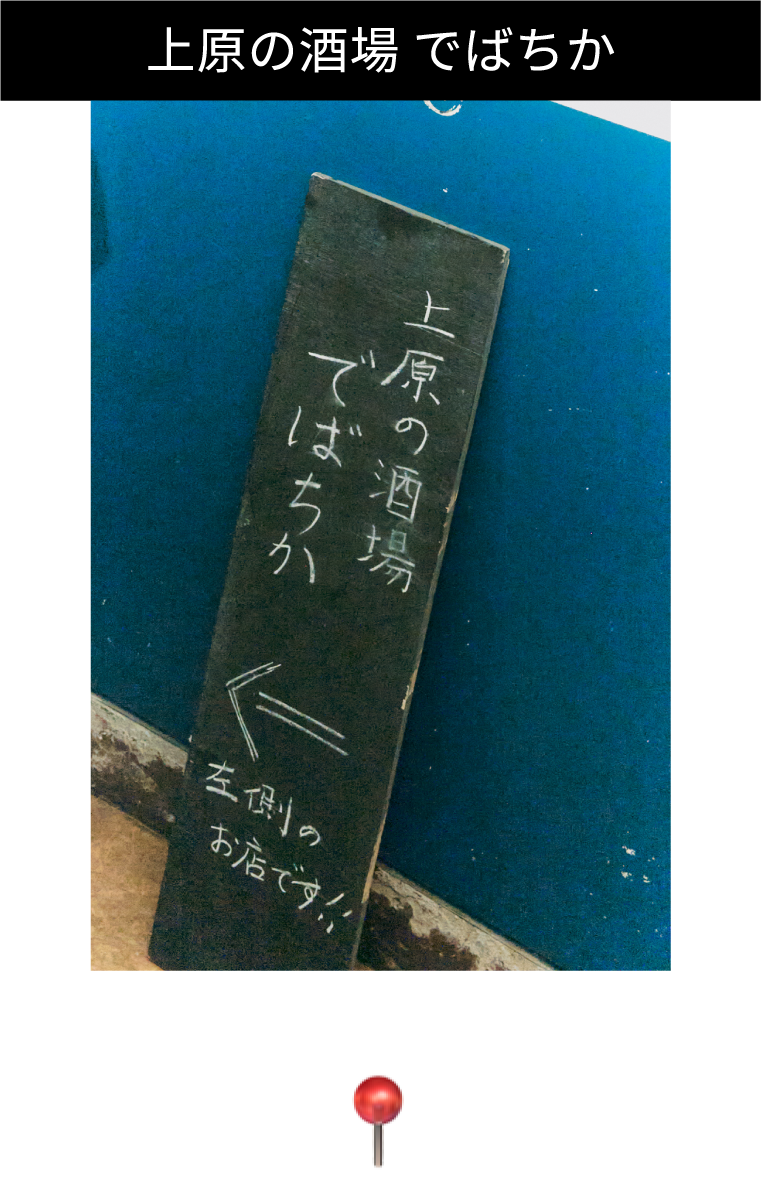 上原の酒場 でばちか
上原の酒場
でばちか
左側の
お店です!!